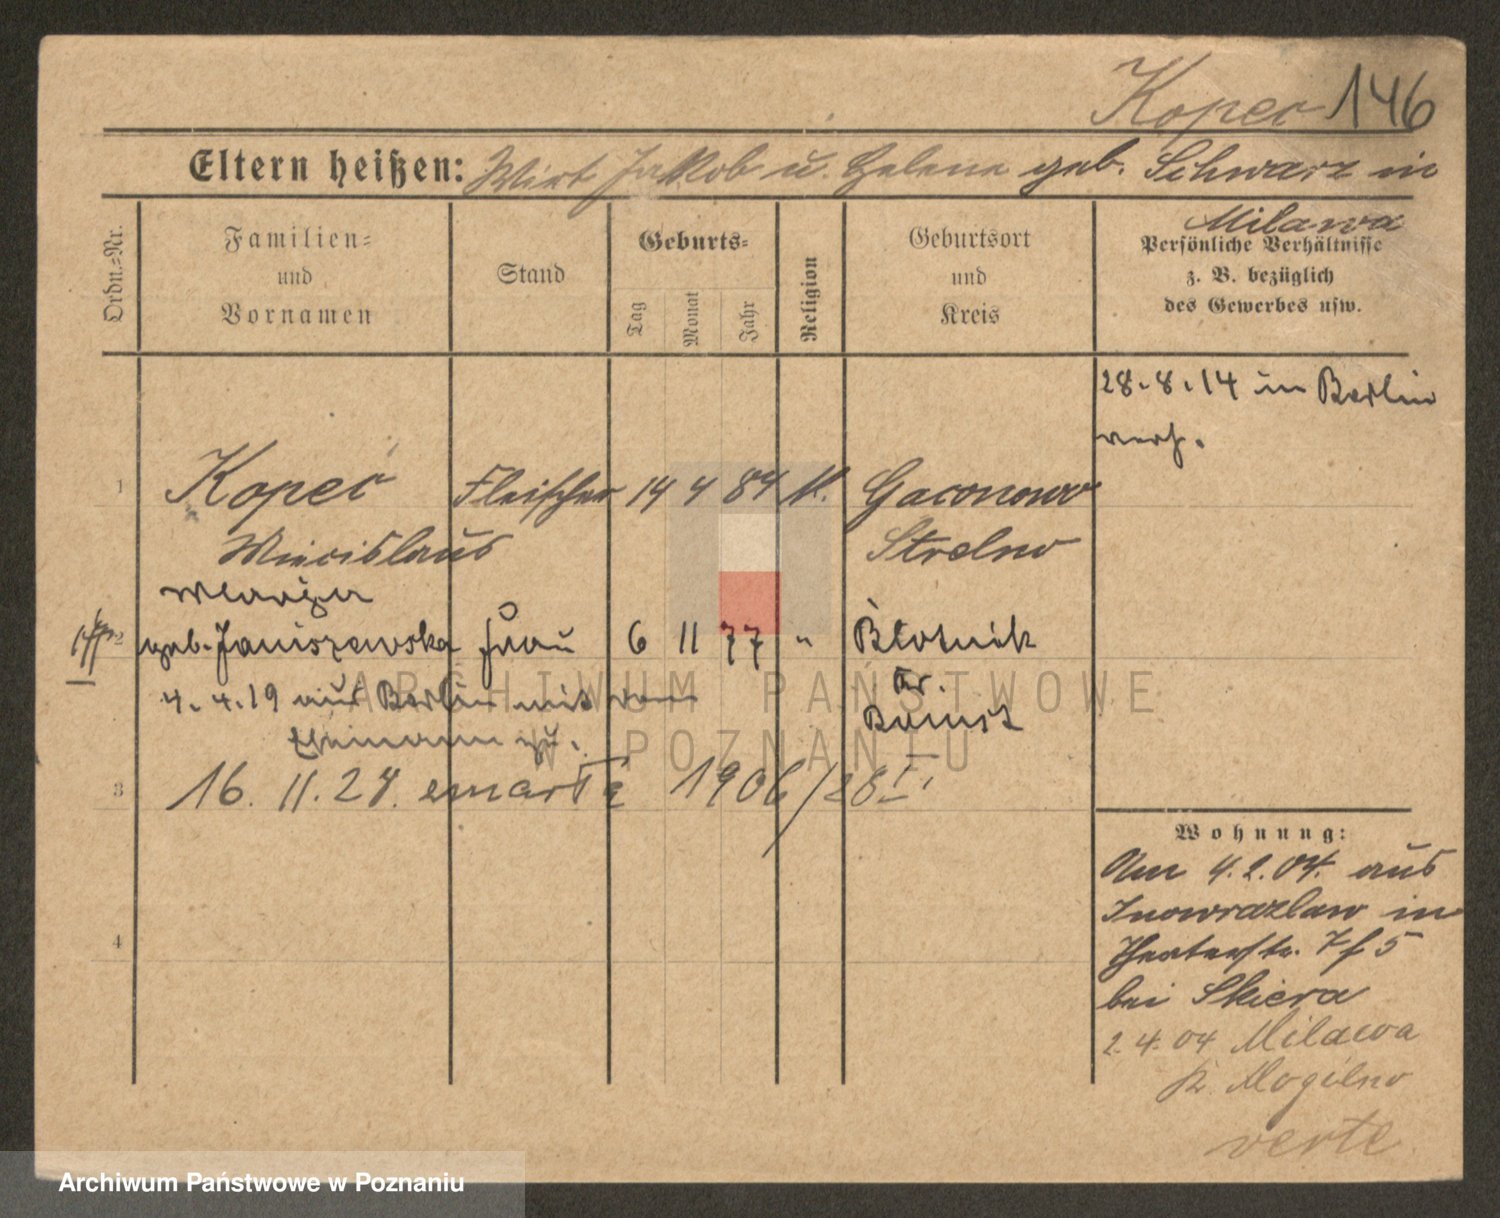 Kopec 146
Eltern heißen: Wirt Jakob u. Helena geb. Schwarz in
Milawa
Ordn.-Nr.
Familien-
und
Vornamen
Stand
Geburts-
Tag
Monat
Jahr
Religion
Geburtsort
und
Kreis
Persönliche Verhältnisse
z. B. bezüglich
des Gewerbes usw.
28.8.14 in Berlin
verh.
1 Kopeć Fleischer 14 4 84 K. Gaconowo
Miecislaus Strelno
2 geb. Janiszewska Frau 6 11 77 " Blotnik
Kr.
Bomst
4.4.19 aus Berlin mit
Ehemann zu.
3 16. 11. 24. emarła 1906/28
4
Wohnung:
Am 4.2.04. aus
Inowrazlaw in
Theaterstr. 7 f 5
bei Skiera
2.4.04 Milawa
Kr. Mogilno
verte
ARCHIWUM PAŃSTWOWE
W POZNANIU
Archiwum Państwowe w Poznaniu